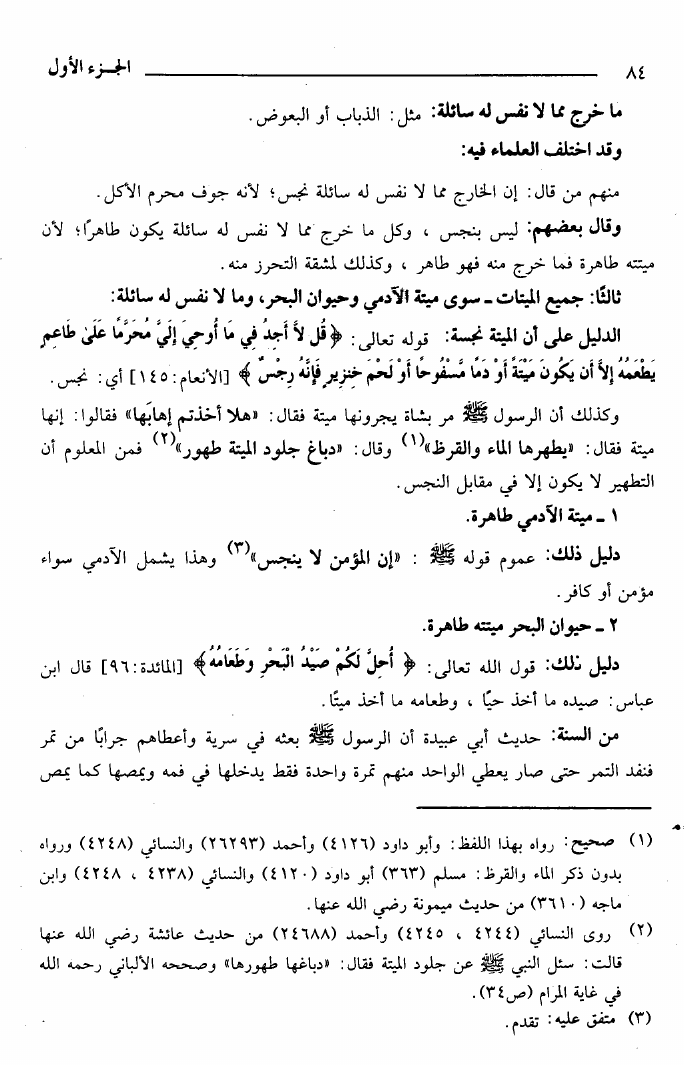 ٨٤ الجـزء الأول
ما خرج مما لا نفس له سائلة: مثل: الذباب أو البعوض.
وقد اختلف العلماء فيه:
منهم من قال: إن الخارج مما لا نفس له سائلة نجس؛ لأنه جوف محرم الأكل.
وقال بعضهم: ليس بنجس ، وكل ما خرج مما لا نفس له سائلة يكون طاهرًا؛ لأن
ميتته طاهرة فما خرج منه فهو طاهر ، وكذلك لمشقة التحرز منه.
ثالثًا: جميع الميتات ـ سوى ميتة الآدمي وحيوان البحر، وما لا نفس له سائلة:
الدليل على أن الميتة نجسة: قوله تعالى: ﴿قُل لاَّ أَجِدُ فِي مَا أُوحِيَ إِلَيَّ مُحَرَّمًا عَلَىٰ طَاعِمٍ
يَطْعَمُهُ إِلاَّ أَن يَكُونَ مَيْتَةً أَوْ دَمًا مَّسْفُوحًا أَوْ لَحْمَ خِنزِيرٍ فَإِنَّهُ رِجْسٌ﴾ [الأنعام:١٤٥] أي: نجس.
وكذلك أن الرسول ﷺ مر بشاة يجرونها ميتة فقال: «هلا أخذتم إهابَها» فقالوا: إنها
ميتة فقال: «يطهرها الماء والقرظ»(١) وقال: «دباغ جلود الميتة طهور»(٢) فمن المعلوم أن
التطهير لا يكون إلا في مقابل النجس.
١ ـ ميتة الآدمي طاهرة.
دليل ذلك: عموم قوله ﷺ : «إن المؤمن لا ينجس»(٣) وهذا يشمل الآدمي سواء
مؤمن أو كافر.
٢ ـ حيوان البحر ميتته طاهرة.
دليل ذلك: قول الله تعالى: ﴿ أُحِلَّ لَكُمْ صَيْدُ الْبَحْرِ وَطَعَامُهُ﴾ [المائدة:٩٦] قال ابن
عباس: صيده ما أخذ حيًا ، وطعامه ما أخذ ميتًا.
من السنة: حديث أبي عبيدة أن الرسول ﷺ بعثه في سرية وأعطاهم جرابًا من تمر
فنفد التمر حتى صار يعطي الواحد منهم تمرة واحدة فقط يدخلها في فمه ويمصها كما يمص
(١) صحيح: رواه بهذا اللفظ: وأبو داود (٤١٢٦) وأحمد (٢٦٢٩٣) والنسائي (٤٢٤٨) ورواه
بدون ذكر الماء والقرظ: مسلم (٣٦٣) أبو داود (٤١٢٠) والنسائي (٤٢٣٨ ، ٤٢٤٨) وابن
ماجه (٣٦١٠) من حديث ميمونة رضي الله عنها.
(٢) روى النسائي (٤٢٤٤ ، ٤٢٤٥) وأحمد (٢٤٦٨٨) من حديث عائشة رضي الله عنها
قالت: سئل النبي ﷺ عن جلود الميتة فقال: «دباغها طهورها» وصححه الألباني رحمه الله
في غاية المرام (ص٣٤).
(٣) متفق عليه: تقدم.